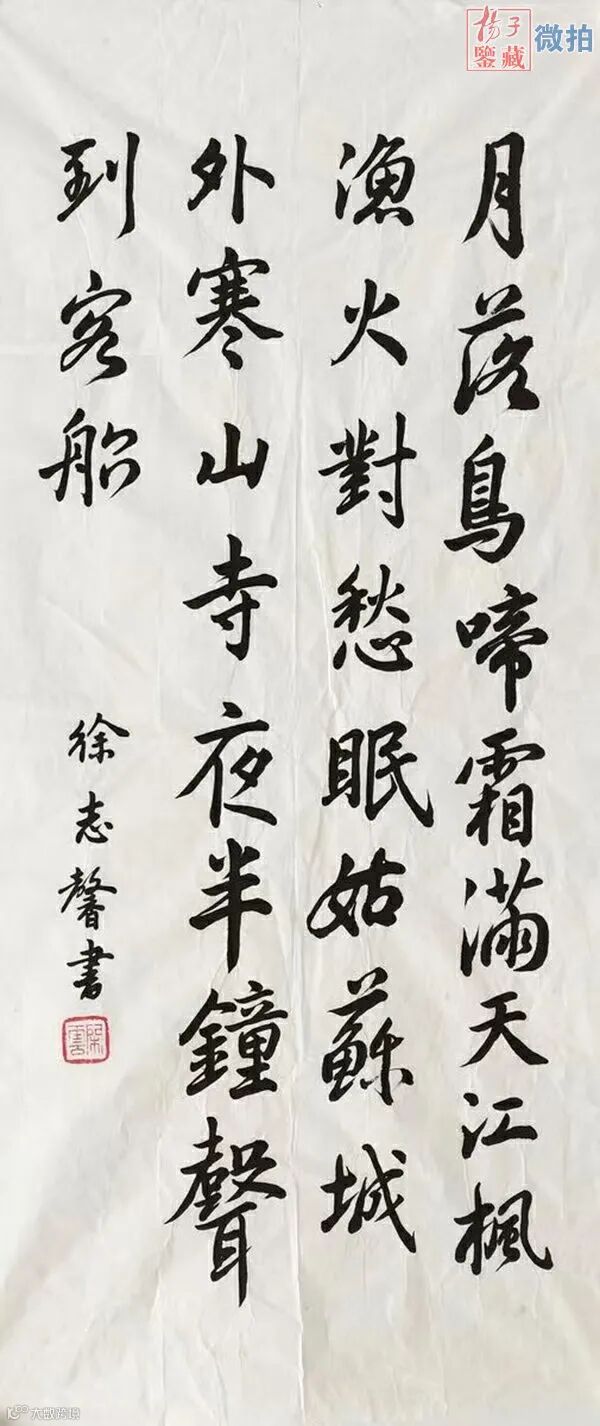 揚子
鑒藏
微拍
月落鳥啼霜滿天江楓
漁火對愁眠姑蘇城
外寒山寺夜半鐘聲
到客船
徐志馨書
大数跨境